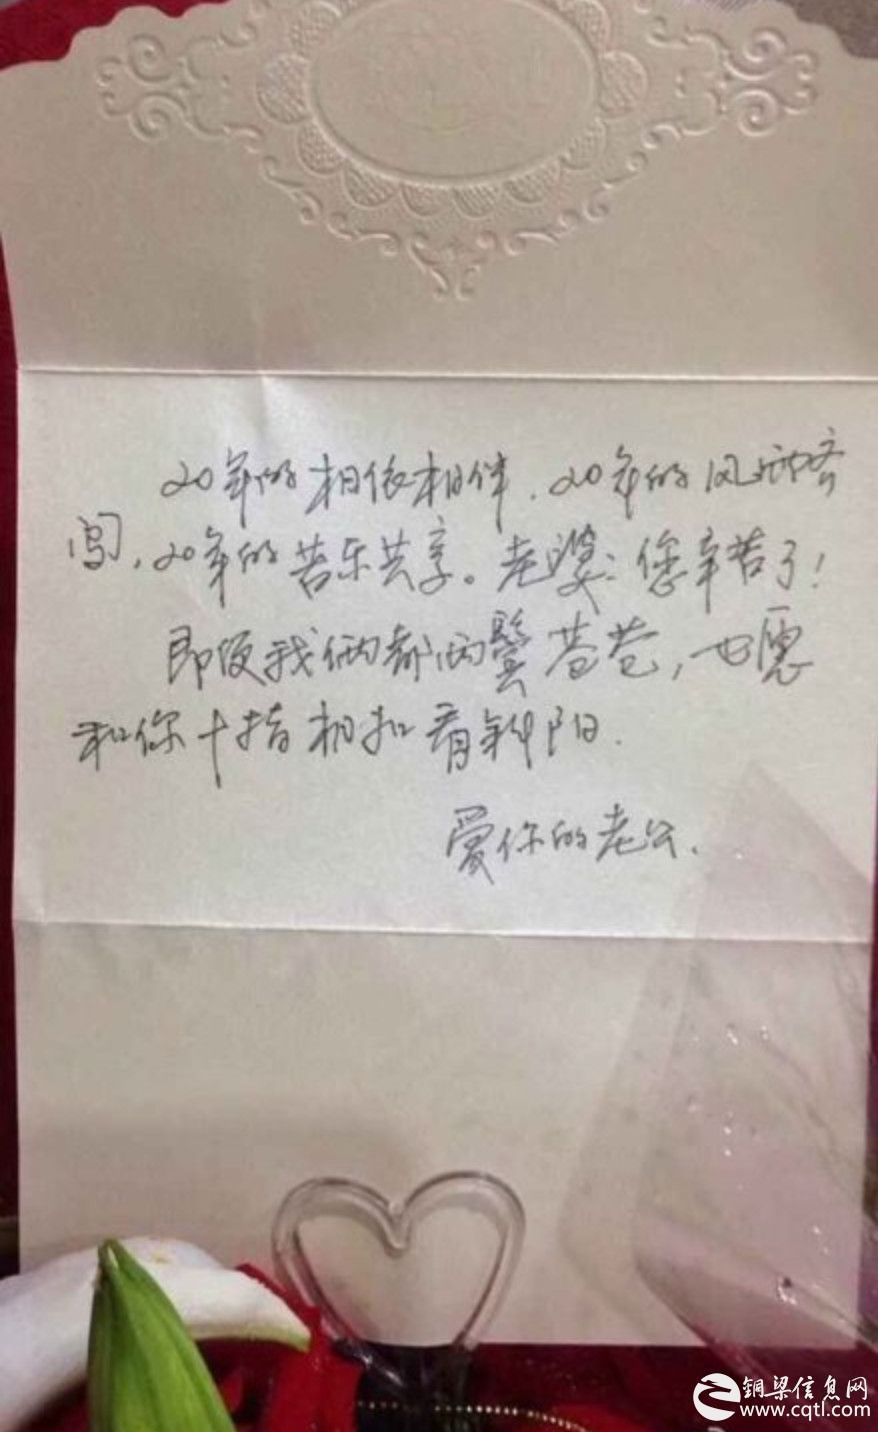 20年的相依相伴、20年的风雨齐
闯、20年的苦乐共享。老婆:您辛苦了!
即便我俩都两鬓苍苍,也愿
和你十指相扣看斜阳.
爱你的老公.
铜梁信息网
www.cqtl.com